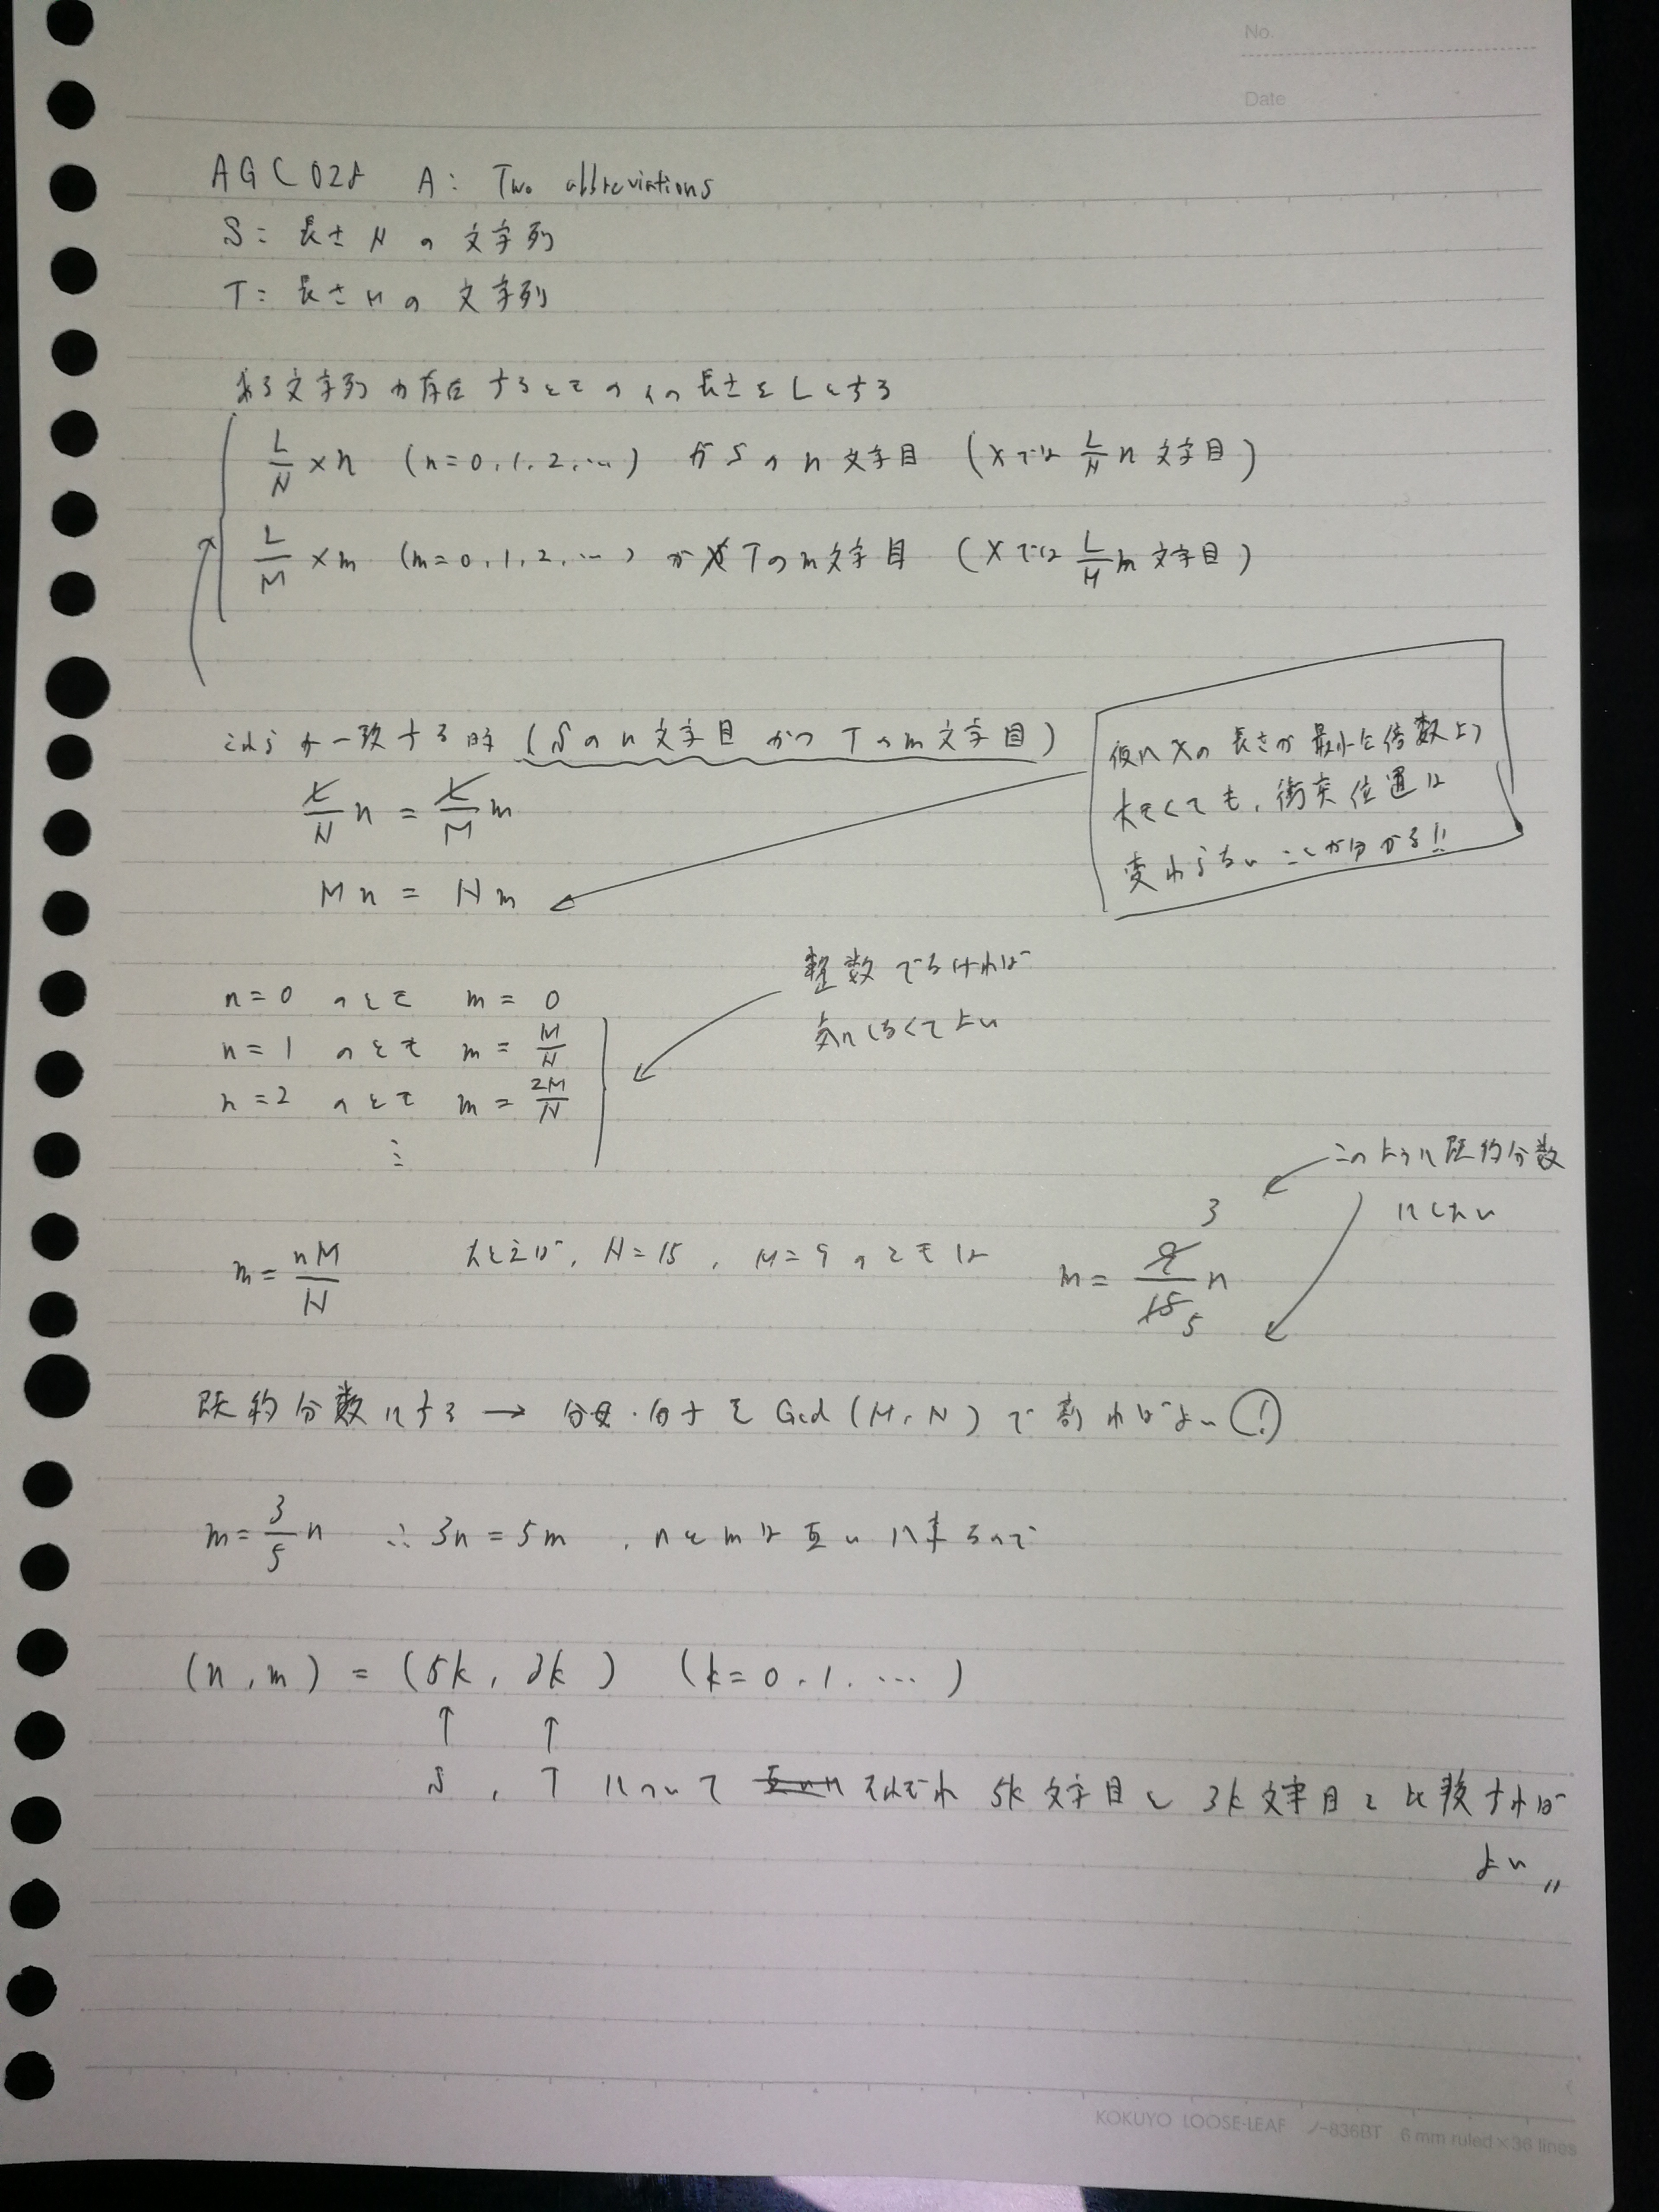 No.
Date
AGC028 A: Two abbreviations
S: 長さ N の 文字列
T: 長さ M の 文字列
ある文字列が存在するとき の 長さを Lとする
L/N × n (n=0,1,2,…) が S の n 文字目 (Xでは L/N n 文字目)
L/M × m (m=0,1,2,…) が T の m 文字目 (Xでは L/M m 文字目)
これらが一致する時 (S の n 文字目 かつ T の m 文字目)
仮に X の 長さが 最小公倍数より
大きくても、衝突位置は
変わらないことが分かる!!
L/N n = L/M m
Mn = Nm
整数でなければ
気にしなくてよい
n=0 のとき m = 0
n=1 のとき m = M/N
n=2 のとき m = 2M/N
⋮
このように既約分数
にしたい
m = nM/N たとえば、N=15, M=9 のときは m = 9/15 n 3 5
既約分数にする → 分母・分子を Gcd(M,N) で割ればよい(!)
m = 3/5 n ∴ 3n = 5m , nとmは互いに素なので
(n,m) = (5k, 3k) (k=0,1,…)
↑ ↑
S , T について 互いに それぞれ 5k文字目と 3k文字目を比較すれば
よい〃
KOKUYO LOOSE-LEAF ノ-836BT 6 mm ruled×36 lines